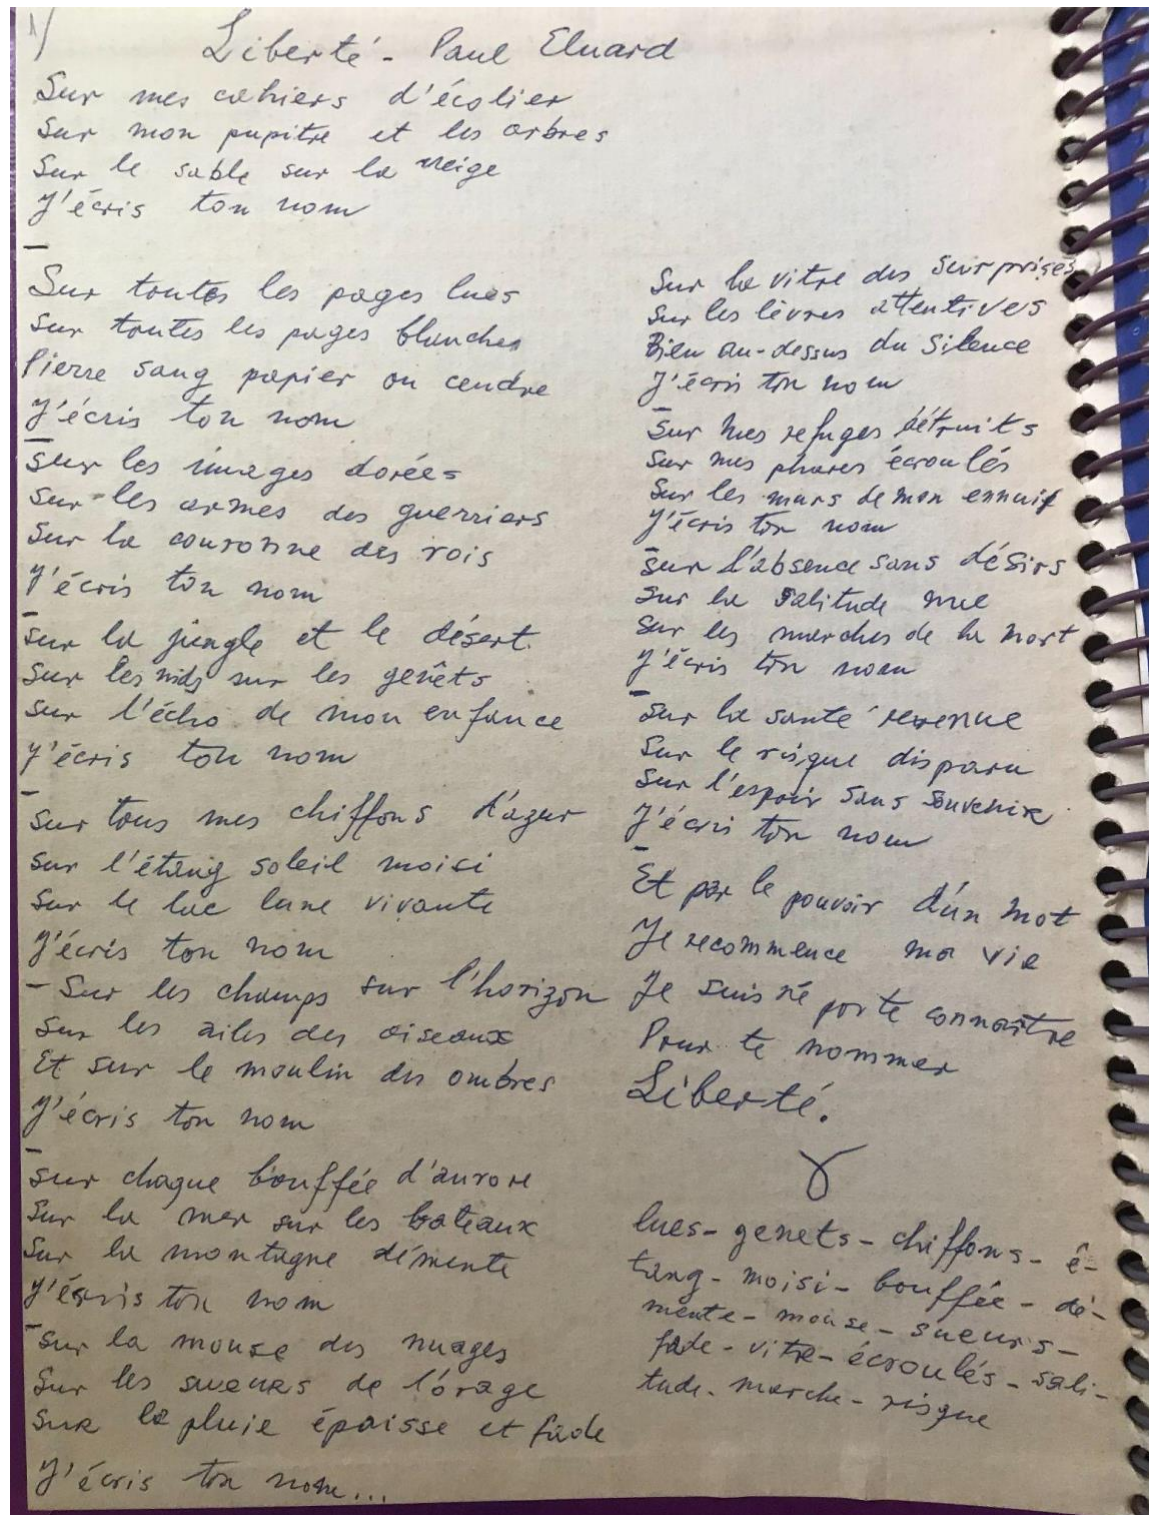 1/
Liberté - Paul Eluard
Sur mes cahiers d'écolier
Sur mon pupitre et les arbres
Sur le sable sur la neige
J'écris ton nom
—
Sur toutes les pages lues
Sur toutes les pages blanches
Pierre sang papier ou cendre
J'écris ton nom
—
Sur les images dorées
Sur les armes des guerriers
Sur la couronne des rois
J'écris ton nom
—
Sur la jungle et le désert
Sur les nids sur les genêts
Sur l'écho de mon enfance
J'écris ton nom
—
Sur tous mes chiffons d'azur
Sur l'étang soleil moisi
Sur le lac lune vivante
J'écris ton nom
— Sur les champs sur l'horizon
Sur les ailes des oiseaux
Et sur le moulin des ombres
J'écris ton nom
—
Sur chaque bouffée d'aurore
Sur la mer sur les bateaux
Sur la montagne démente
J'écris ton nom
—
Sur la mouse des nuages
Sur les sueurs de l'orage
Sur la pluie épaisse et fade
J'écris ton nom...
Sur la vitre des surprises
Sur les lèvres attentives
Bien au-dessus du silence
J'écris ton nom
—
Sur mes refuges détruits
Sur mes phares écroulés
Sur les murs de mon ennui
J'écris ton nom
—
Sur l'absence sans désirs
Sur la salitude nue
Sur les marches de la mort
J'écris ton nom
—
Sur la santé revenue
Sur le risque disparu
Sur l'espoir sans souvenir
J'écris ton nom
—
Et par le pouvoir d'un mot
Je recommence ma vie
Je suis né por te connaître
Pour te nommer
Liberté.
lues - genets - chiffons - é-
tang - moisi - bouffée - dé-
mente - mouse - sueurs -
fade - vitre - écroulés - sali-
tude - marche - risque